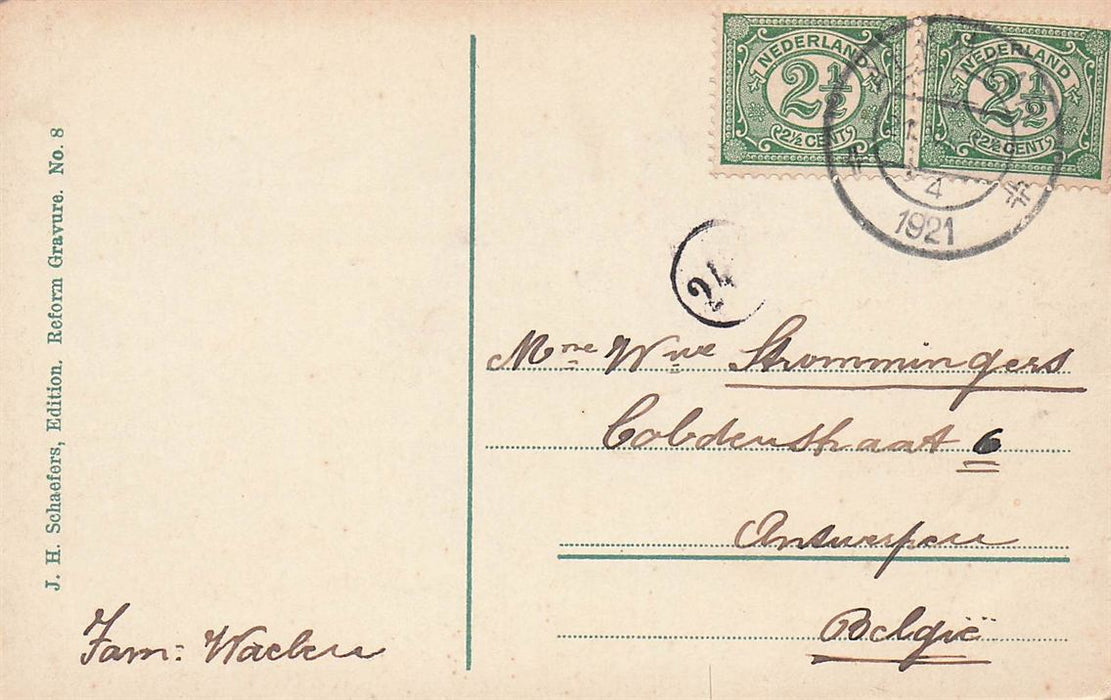 J. H. Schaefers, Edition. Reform Gravure. No. 8
NEDERLAND
2½
2½ CENT
NEDERLAND
2½
2½ CENT
4
1921
24
Mme Wwe Strommingers
Cobdenstraat 6
Antwerpen
België
Fam: Waelen